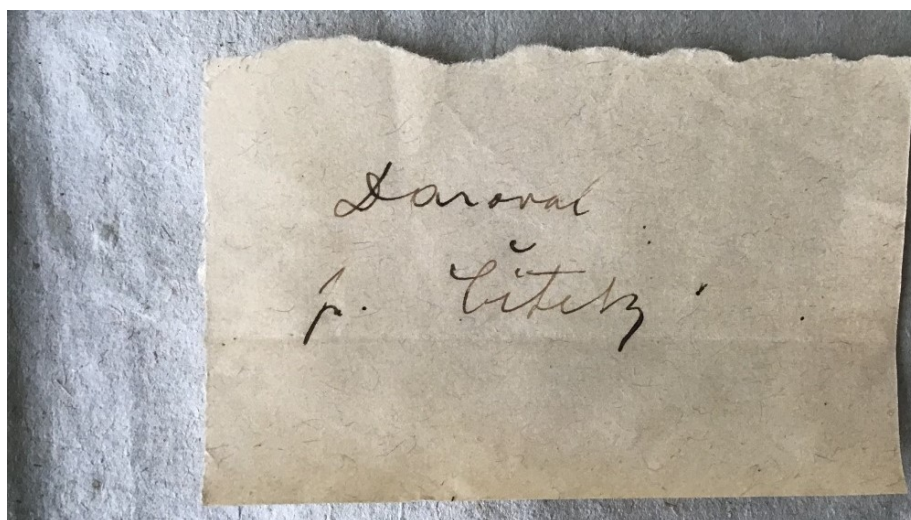 Daroval
p. Čítecký